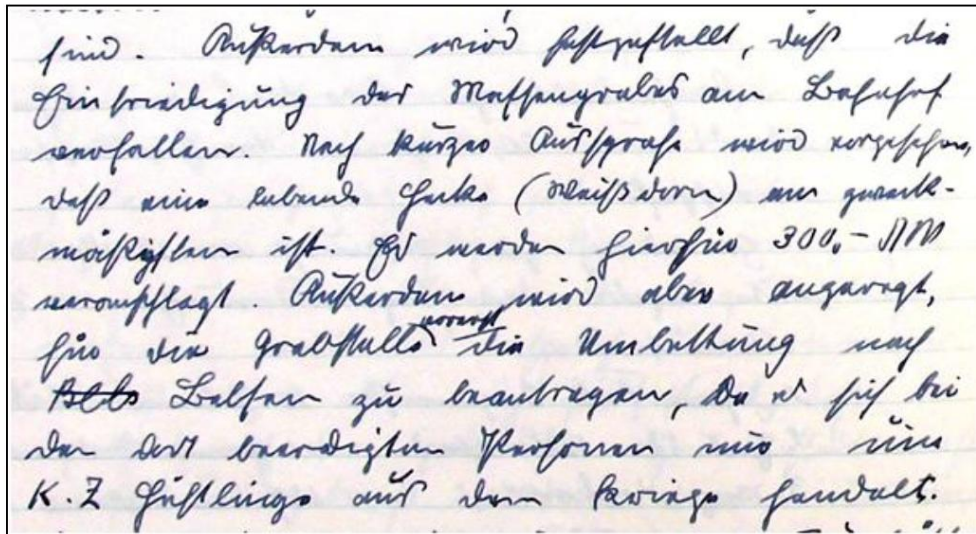 sind. Außerdem wird festgestellt, daß die
Einfriedigung des Massengrabes am Bahnhof
verfallen. Nach kurzer Aussprache wird vorgesehen,
daß eine lebende Hecke (Weißdorn) am zweck-
mäßigsten ist. Es werden hierfür 300,- RM
veranschlagt. Außerdem wird aber angeregt,
für die Grabstelle vorerst die Umbettung nach
Belsen zu beantragen, da es sich bei
den dort beerdigten Personen nur um
K.Z Häftlinge aus dem Kriege handelt.